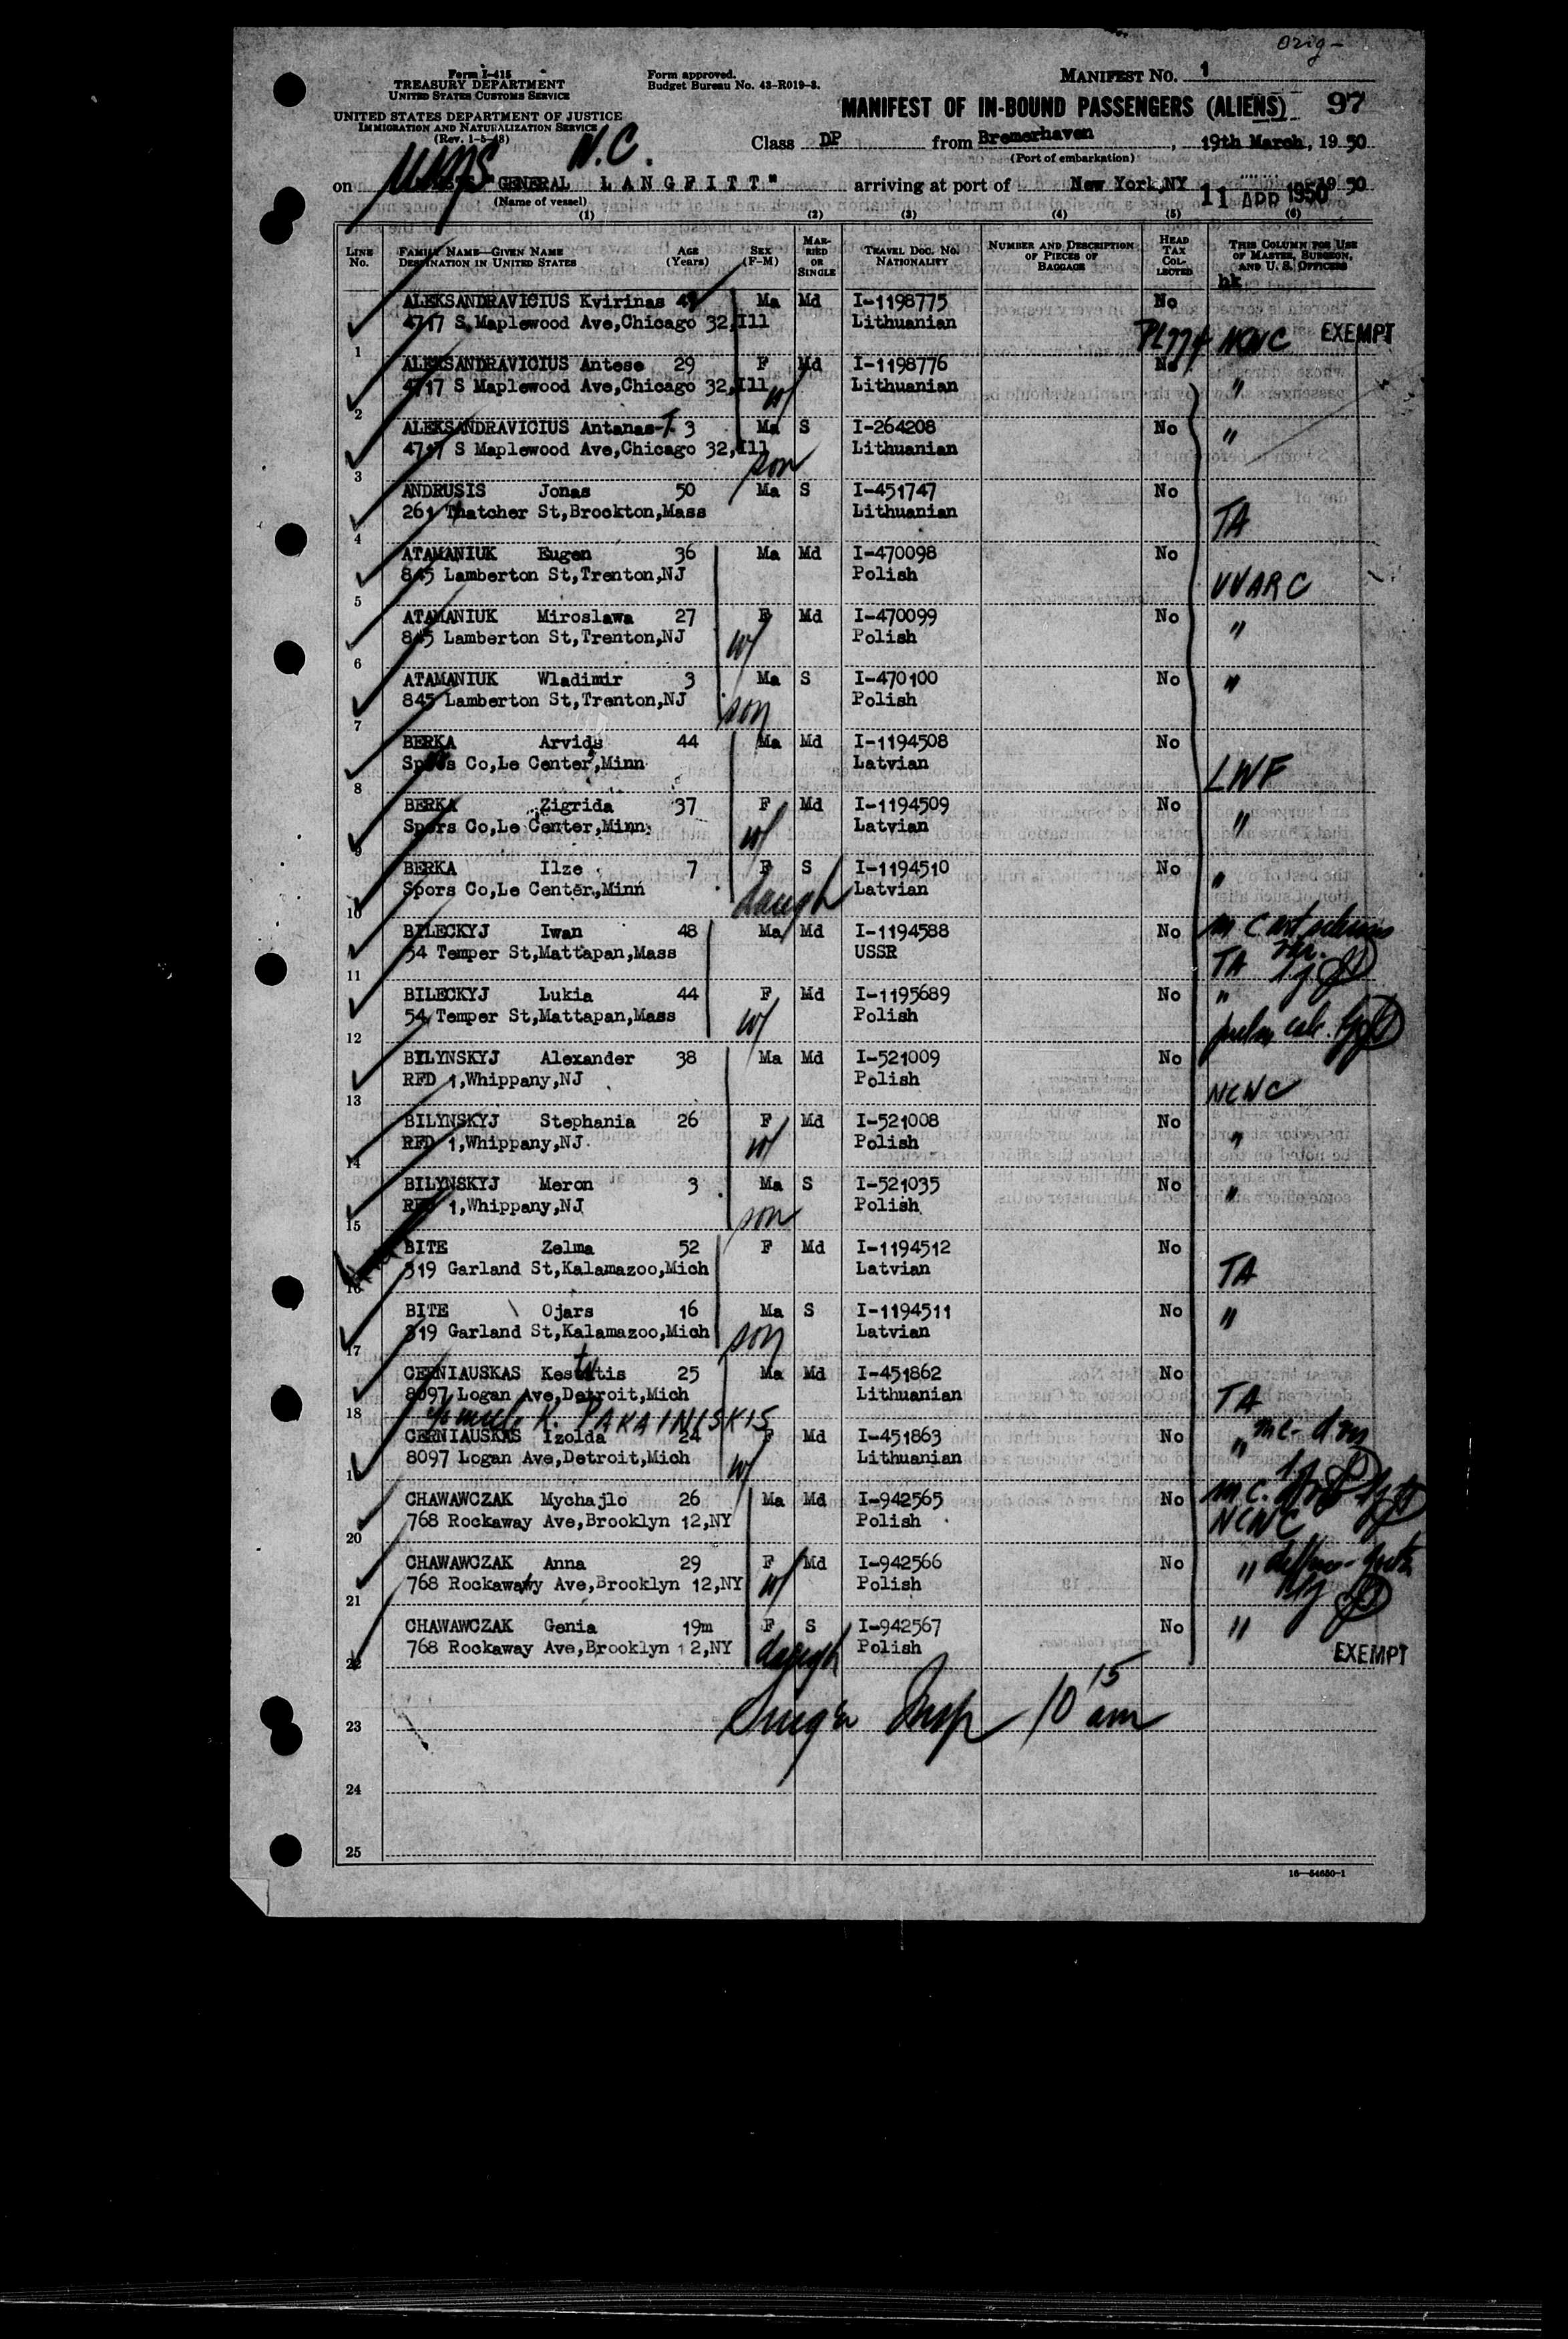 Orig-
Form I-415
TREASURY DEPARTMENT
UNITED STATES CUSTOMS SERVICE
UNITED STATES DEPARTMENT OF JUSTICE
IMMIGRATION AND NATURALIZATION SERVICE
(Rev. 1-5-48)
Form approved.
Budget Bureau No. 43-R019-3.
MANIFEST NO. 1
MANIFEST OF IN-BOUND PASSENGERS (ALIENS) 97
N.C.
Class DP from Bremerhaven, 19th March, 1950
(Port of embarkation)
on "GENERAL LANGFITT" arriving at port of New York,NY 11 APR 1950 1950
(Name of vessel)
(1) (2) (3) (4) (5) (6)
LINE No. FAMILY NAME—GIVEN NAME DESTINATION IN UNITED STATES AGE (Years) SEX (F-M) MARRIED OR SINGLE TRAVEL DOC. No. NATIONALITY NUMBER AND DESCRIPTION OF PIECES OF BAGGAGE HEAD TAX COLLECTED THIS COLUMN FOR USE OF MASTER, SURGEON, AND U. S. OFFICERS
hk
ALEKSANDRAVICIUS Kvirinas Ma Md I-1198775 No
4717 S Maplewood Ave,Chicago 32,Ill Lithuanian PL774 NCWC EXEMPT
1
ALEKSANDRAVICIUS Antose 29 F Md I-1198776 No
4717 S Maplewood Ave,Chicago 32,Ill w/ Lithuanian "
2
ALEKSANDRAVICIUS Antanas-J. 3 Ma S I-264208 No
4717 S Maplewood Ave,Chicago 32,Ill son Lithuanian "
3
ANDRUSIS Jonas 50 Ma S I-451747 No
261 Thatcher St,Brockton,Mass Lithuanian TA
4
ATAMANIUK Eugen 36 Ma Md I-470098 No
845 Lamberton St,Trenton,NJ Polish UUARC
5
ATAMANIUK Miroslawa 27 F Md I-470099 No
845 Lamberton St,Trenton,NJ w/ Polish "
6
ATAMANIUK Wladimir 3 Ma S I-470100 No
845 Lamberton St,Trenton,NJ son Polish "
7
BERKA Arvids 44 Ma Md I-1194508 No
Spors Co,Le Center,Minn Latvian LWF
8
BERKA Zigrida 37 F Md I-1194509 No
Spors Co,Le Center,Minn w/ Latvian "
9
BERKA Ilze 7 F S I-1194510 No
Spors Co,Le Center,Minn daugh Latvian "
10
BILECKYJ Iwan 48 Ma Md I-1194588 No
54 Temper St,Mattapan,Mass USSR TA
11
BILECKYJ Lukia 44 F Md I-1195689 No "
54 Temper St,Mattapan,Mass w/ Polish
12
BILYNSKYJ Alexander 38 Ma Md I-521009 No
RFD 1,Whippany,NJ Polish NCWC
13
BILYNSKYJ Stephania 26 F Md I-521008 No
RFD 1,Whippany,NJ w/ Polish "
14
BILYNSKYJ Meron 3 Ma S I-521035 No
RFD 1,Whippany,NJ son Polish "
15
BITE Zelma 52 F Md I-1194512 No
819 Garland St,Kalamazoo,Mich Latvian TA
16
BITE Ojars 16 Ma S I-1194511 No
819 Garland St,Kalamazoo,Mich son Latvian "
17
CERNIAUSKAS Kestutis 25 Ma Md I-451862 No
8097 Logan Ave,Detroit,Mich Lithuanian TA
18
K. PAKAINISKIS
CERNIAUSKAS Izolda 24 F Md I-451863 No "
8097 Logan Ave,Detroit,Mich w/ Lithuanian
19
CHAWAWCZAK Mychajlo 26 Ma Md I-942565 No
768 Rockaway Ave,Brooklyn 12,NY Polish NCWC
20
CHAWAWCZAK Anna 29 F Md I-942566 No "
768 Rockaway Ave,Brooklyn 12,NY w/ Polish
21
CHAWAWCZAK Genia 19m F S I-942567 No "
768 Rockaway Ave,Brooklyn 12,NY daugh Polish EXEMPT
22
Insp 10 15 am
23
24
25
16—54650-1